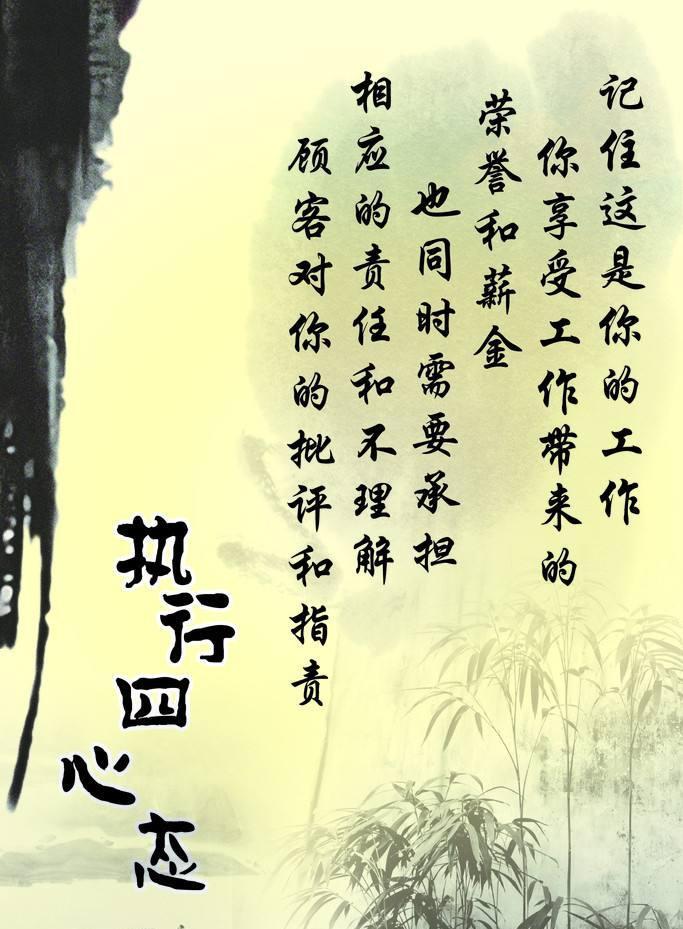 记住这是你的工作
你享受工作带来的
荣誉和薪金
也同时需要承担
相应的责任和不理解
顾客对你的批评和指责
执行四心态